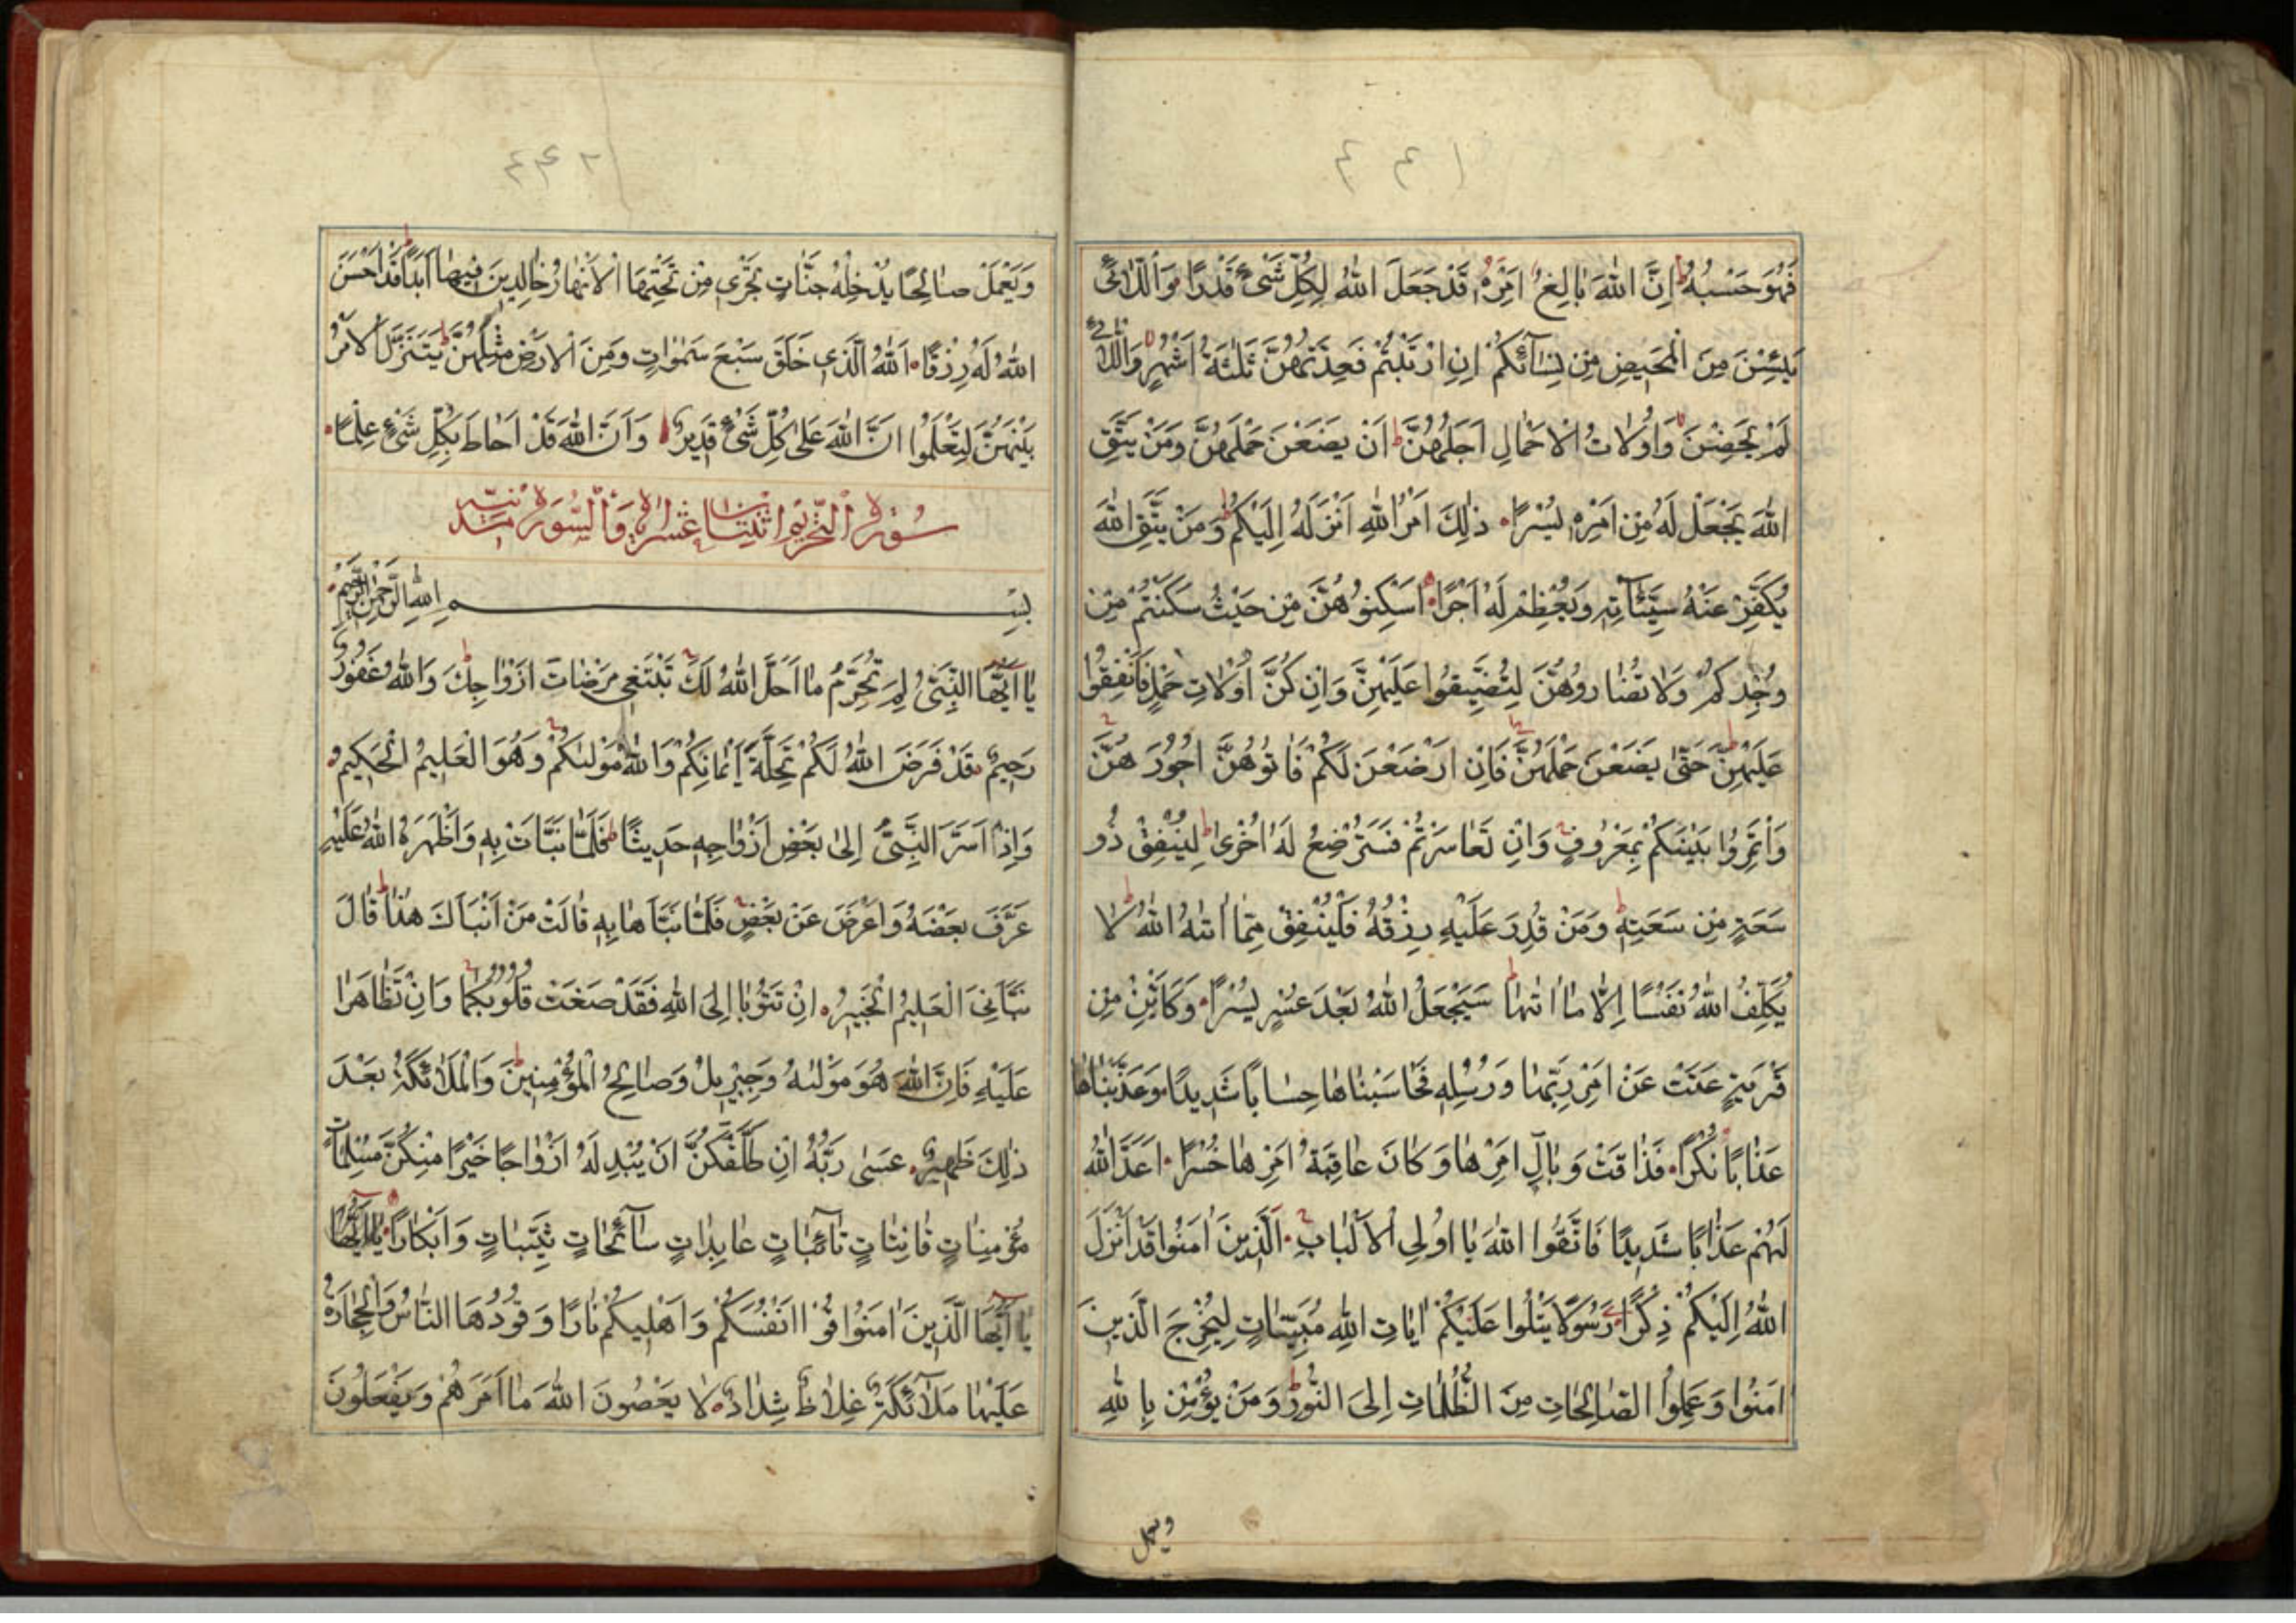 ٤٤١
فَهُوَ حَسْبُهُ اِنَّ اللّٰهَ بَالِغُ اَمْرِهٖ قَدْ جَعَلَ اللّٰهُ لِكُلِّ شَیْءٍ قَدْرًا وَالّٰلائٖ
يَئِسْنَ مِنَ الْمَحٖيضِ مِنْ نِسَآئِكُمْ اِنِ ارْتَبْتُمْ فَعِدَّتُهُنَّ ثَلٰثَةُ اَشْهُرٍ وَالّٰلائٖ
لَمْ يَحِضْنَ وَاُولَاتُ الْاَحْمَالِ اَجَلُهُنَّ اَنْ يَضَعْنَ حَمْلَهُنَّ وَمَنْ يَتَّقِ
اللّٰهَ يَجْعَلْ لَهُ مِنْ اَمْرِهٖ يُسْرًا ذٰلِكَ اَمْرُ اللّٰهِ اَنْزَلَهُ اِلَيْكُمْ وَمَنْ يَتَّقِ اللّٰهَ
يُكَفِّرْ عَنْهُ سَيِّئَاتِهٖ وَيُعْظِمْ لَهُ اَجْرًا اَسْكِنُوهُنَّ مِنْ حَيْثُ سَكَنْتُمْ مِنْ
وُجْدِكُمْ وَلَا تُضَارُّوهُنَّ لِتُضَيِّقُوا عَلَيْهِنَّ وَاِنْ كُنَّ اُولَاتِ حَمْلٍ فَاَنْفِقُوا
عَلَيْهِنَّ حَتّٰى يَضَعْنَ حَمْلَهُنَّ فَاِنْ اَرْضَعْنَ لَكُمْ فَاٰتُوهُنَّ اُجُورَهُنَّ
وَاْتَمِرُوا بَيْنَكُمْ بِمَعْرُوفٍ وَاِنْ تَعَاسَرْتُمْ فَسَتُرْضِعُ لَهُ اُخْرٰى لِيُنْفِقْ ذُو
سَعَةٍ مِنْ سَعَتِهٖ وَمَنْ قُدِرَ عَلَيْهِ رِزْقُهُ فَلْيُنْفِقْ مِمَّا اٰتٰهُ اللّٰهُ لَا
يُكَلِّفُ اللّٰهُ نَفْسًا اِلَّا مَا اٰتٰهَا سَيَجْعَلُ اللّٰهُ بَعْدَ عُسْرٍ يُسْرًا وَكَاَيِّنْ مِنْ
قَرْيَةٍ عَتَتْ عَنْ اَمْرِ رَبِّهَا وَرُسُلِهٖ فَحَاسَبْنَاهَا حِسَابًا شَدٖيدًا وَعَذَّبْنَاهَا
عَذَابًا نُكْرًا فَذَاقَتْ وَبَالَ اَمْرِهَا وَكَانَ عَاقِبَةُ اَمْرِهَا خُسْرًا اَعَدَّ اللّٰهُ
لَهُمْ عَذَابًا شَدٖيدًا فَاتَّقُوا اللّٰهَ يَا اُولِى الْاَلْبَابِ الَّذٖينَ اٰمَنُوا قَدْ اَنْزَلَ
اللّٰهُ اِلَيْكُمْ ذِكْرًا رَسُولًا يَتْلُوا عَلَيْكُمْ اٰيَاتِ اللّٰهِ مُبَيِّنَاتٍ لِيُخْرِجَ الَّذٖينَ
اٰمَنُوا وَعَمِلُوا الصَّالِحَاتِ مِنَ الظُّلُمَاتِ اِلَى النُّورِ وَمَنْ يُؤْمِنْ بِاللّٰهِ
ويعمل
٤٤٢
وَيَعْمَلْ صَالِحًا يُدْخِلْهُ جَنَّاتٍ تَجْرٖى مِنْ تَحْتِهَا الْاَنْهَارُ خَالِدٖينَ فٖيهَا اَبَدًا قَدْ اَحْسَنَ
اللّٰهُ لَهُ رِزْقًا اَللّٰهُ الَّذٖى خَلَقَ سَبْعَ سَمٰوَاتٍ وَمِنَ الْاَرْضِ مِثْلَهُنَّ يَتَنَزَّلُ الْاَمْرُ
بَيْنَهُنَّ لِتَعْلَمُوا اَنَّ اللّٰهَ عَلٰى كُلِّ شَیْءٍ قَدٖيرٌ وَاَنَّ اللّٰهَ قَدْ اَحَاطَ بِكُلِّ شَیْءٍ عِلْمًا
سُورَةُ التَّحْرٖيمِ اثْنَتَا عَشَرَ اٰيَةً وَالسُّورَةُ مَدَنِيَّةٌ
بِسْمِ اللّٰهِ الرَّحْمٰنِ الرَّحٖيمِ
يَا اَيُّهَا النَّبِىُّ لِمَ تُحَرِّمُ مَا اَحَلَّ اللّٰهُ لَكَ تَبْتَغٖى مَرْضَاتَ اَزْوَاجِكَ وَاللّٰهُ غَفُورٌ
رَحٖيمٌ قَدْ فَرَضَ اللّٰهُ لَكُمْ تَحِلَّةَ اَيْمَانِكُمْ وَاللّٰهُ مَوْلٰىكُمْ وَهُوَ الْعَلٖيمُ الْحَكٖيمُ
وَاِذْ اَسَرَّ النَّبِىُّ اِلٰى بَعْضِ اَزْوَاجِهٖ حَدٖيثًا فَلَمَّا نَبَّاَتْ بِهٖ وَاَظْهَرَهُ اللّٰهُ عَلَيْهِ
عَرَّفَ بَعْضَهُ وَاَعْرَضَ عَنْ بَعْضٍ فَلَمَّا نَبَّاَهَا بِهٖ قَالَتْ مَنْ اَنْبَاَكَ هٰذَا قَالَ
نَبَّاَنِىَ الْعَلٖيمُ الْخَبٖيرُ اِنْ تَتُوبَا اِلَى اللّٰهِ فَقَدْ صَغَتْ قُلُوبُكُمَا وَاِنْ تَظَاهَرَا
عَلَيْهِ فَاِنَّ اللّٰهَ هُوَ مَوْلٰىهُ وَجِبْرٖيلُ وَصَالِحُ الْمُؤْمِنٖينَ وَالْمَلٰٓئِكَةُ بَعْدَ
ذٰلِكَ ظَهٖيرٌ عَسٰى رَبُّهُ اِنْ طَلَّقَكُنَّ اَنْ يُبْدِلَهُ اَزْوَاجًا خَيْرًا مِنْكُنَّ مُسْلِمَاتٍ
مُؤْمِنَاتٍ قَانِتَاتٍ تَآئِبَاتٍ عَابِدَاتٍ سَآئِحَاتٍ ثَيِّبَاتٍ وَاَبْكَارًا يَا اَيُّهَا
يَا اَيُّهَا الَّذٖينَ اٰمَنُوا قُوا اَنْفُسَكُمْ وَاَهْلٖيكُمْ نَارًا وَقُودُهَا النَّاسُ وَالْحِجَارَةُ
عَلَيْهَا مَلٰٓئِكَةٌ غِلَاظٌ شِدَادٌ لَا يَعْصُونَ اللّٰهَ مَا اَمَرَهُمْ وَيَفْعَلُونَ